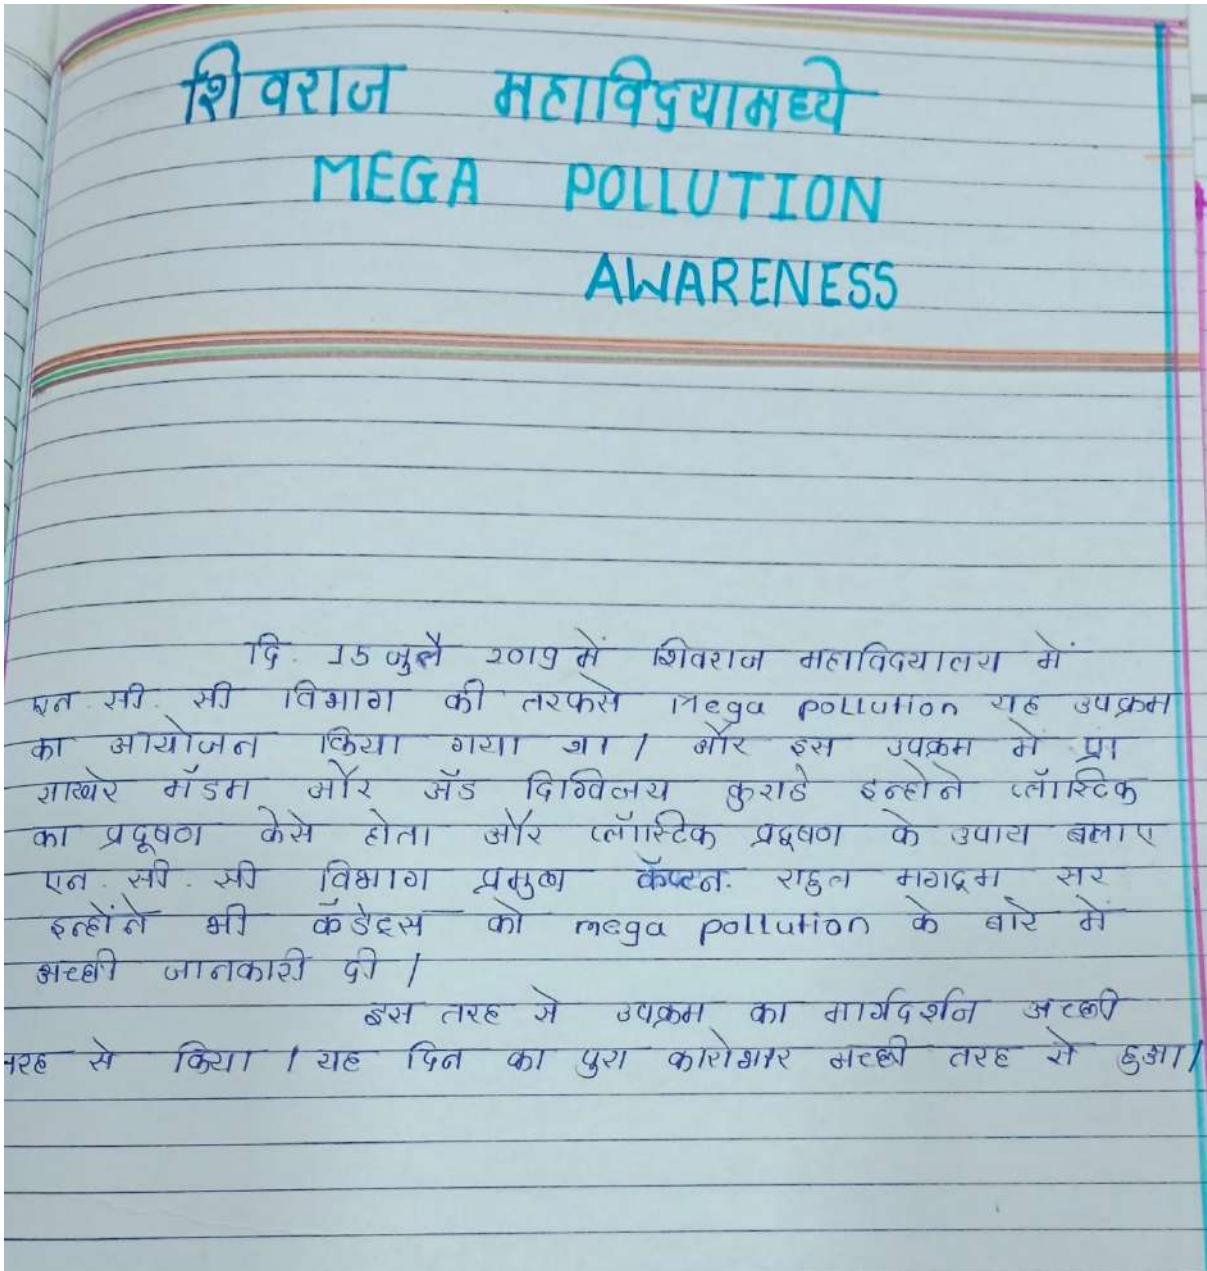 शिवराज महाविद्यामध्ये
MEGA POLLUTION
AWARENESS
दि. 15 जुलै 2019 में शिवराज महाविद्यालय में
एन. सी. सी विभाग की तरफसे Mega pollution यह उपक्रम
का आयोजन किया गया था / और इस उपक्रम में प्रा
साखरे मॅडम और अ‍ॅड दिग्विजय कुराडे इन्होने प्लॅास्टिक
का प्रदूषण केसे होता और प्लॅास्टिक प्रदूषण के उपाय बताए
एन. सी. सी विभाग प्रमुख कॅप्टन. राहुल मगदूम सर
इन्होंने भी कॅडेट्स को mega pollution के बारे में
अच्छी जानकारी दी /
इस तरह से उपक्रम का मार्गदर्शन अच्छी
तरह से किया / यह दिन का पुरा कारोभार अच्छी तरह से हुआ /